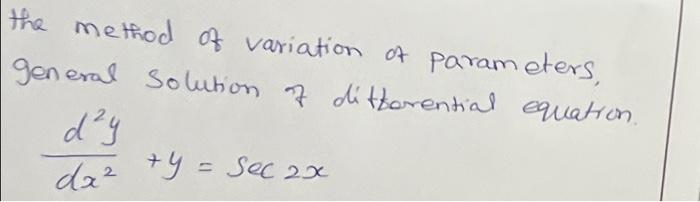 the method of variation of parameters,
general solution of differential equation.
d²y/dx² + y = sec 2x